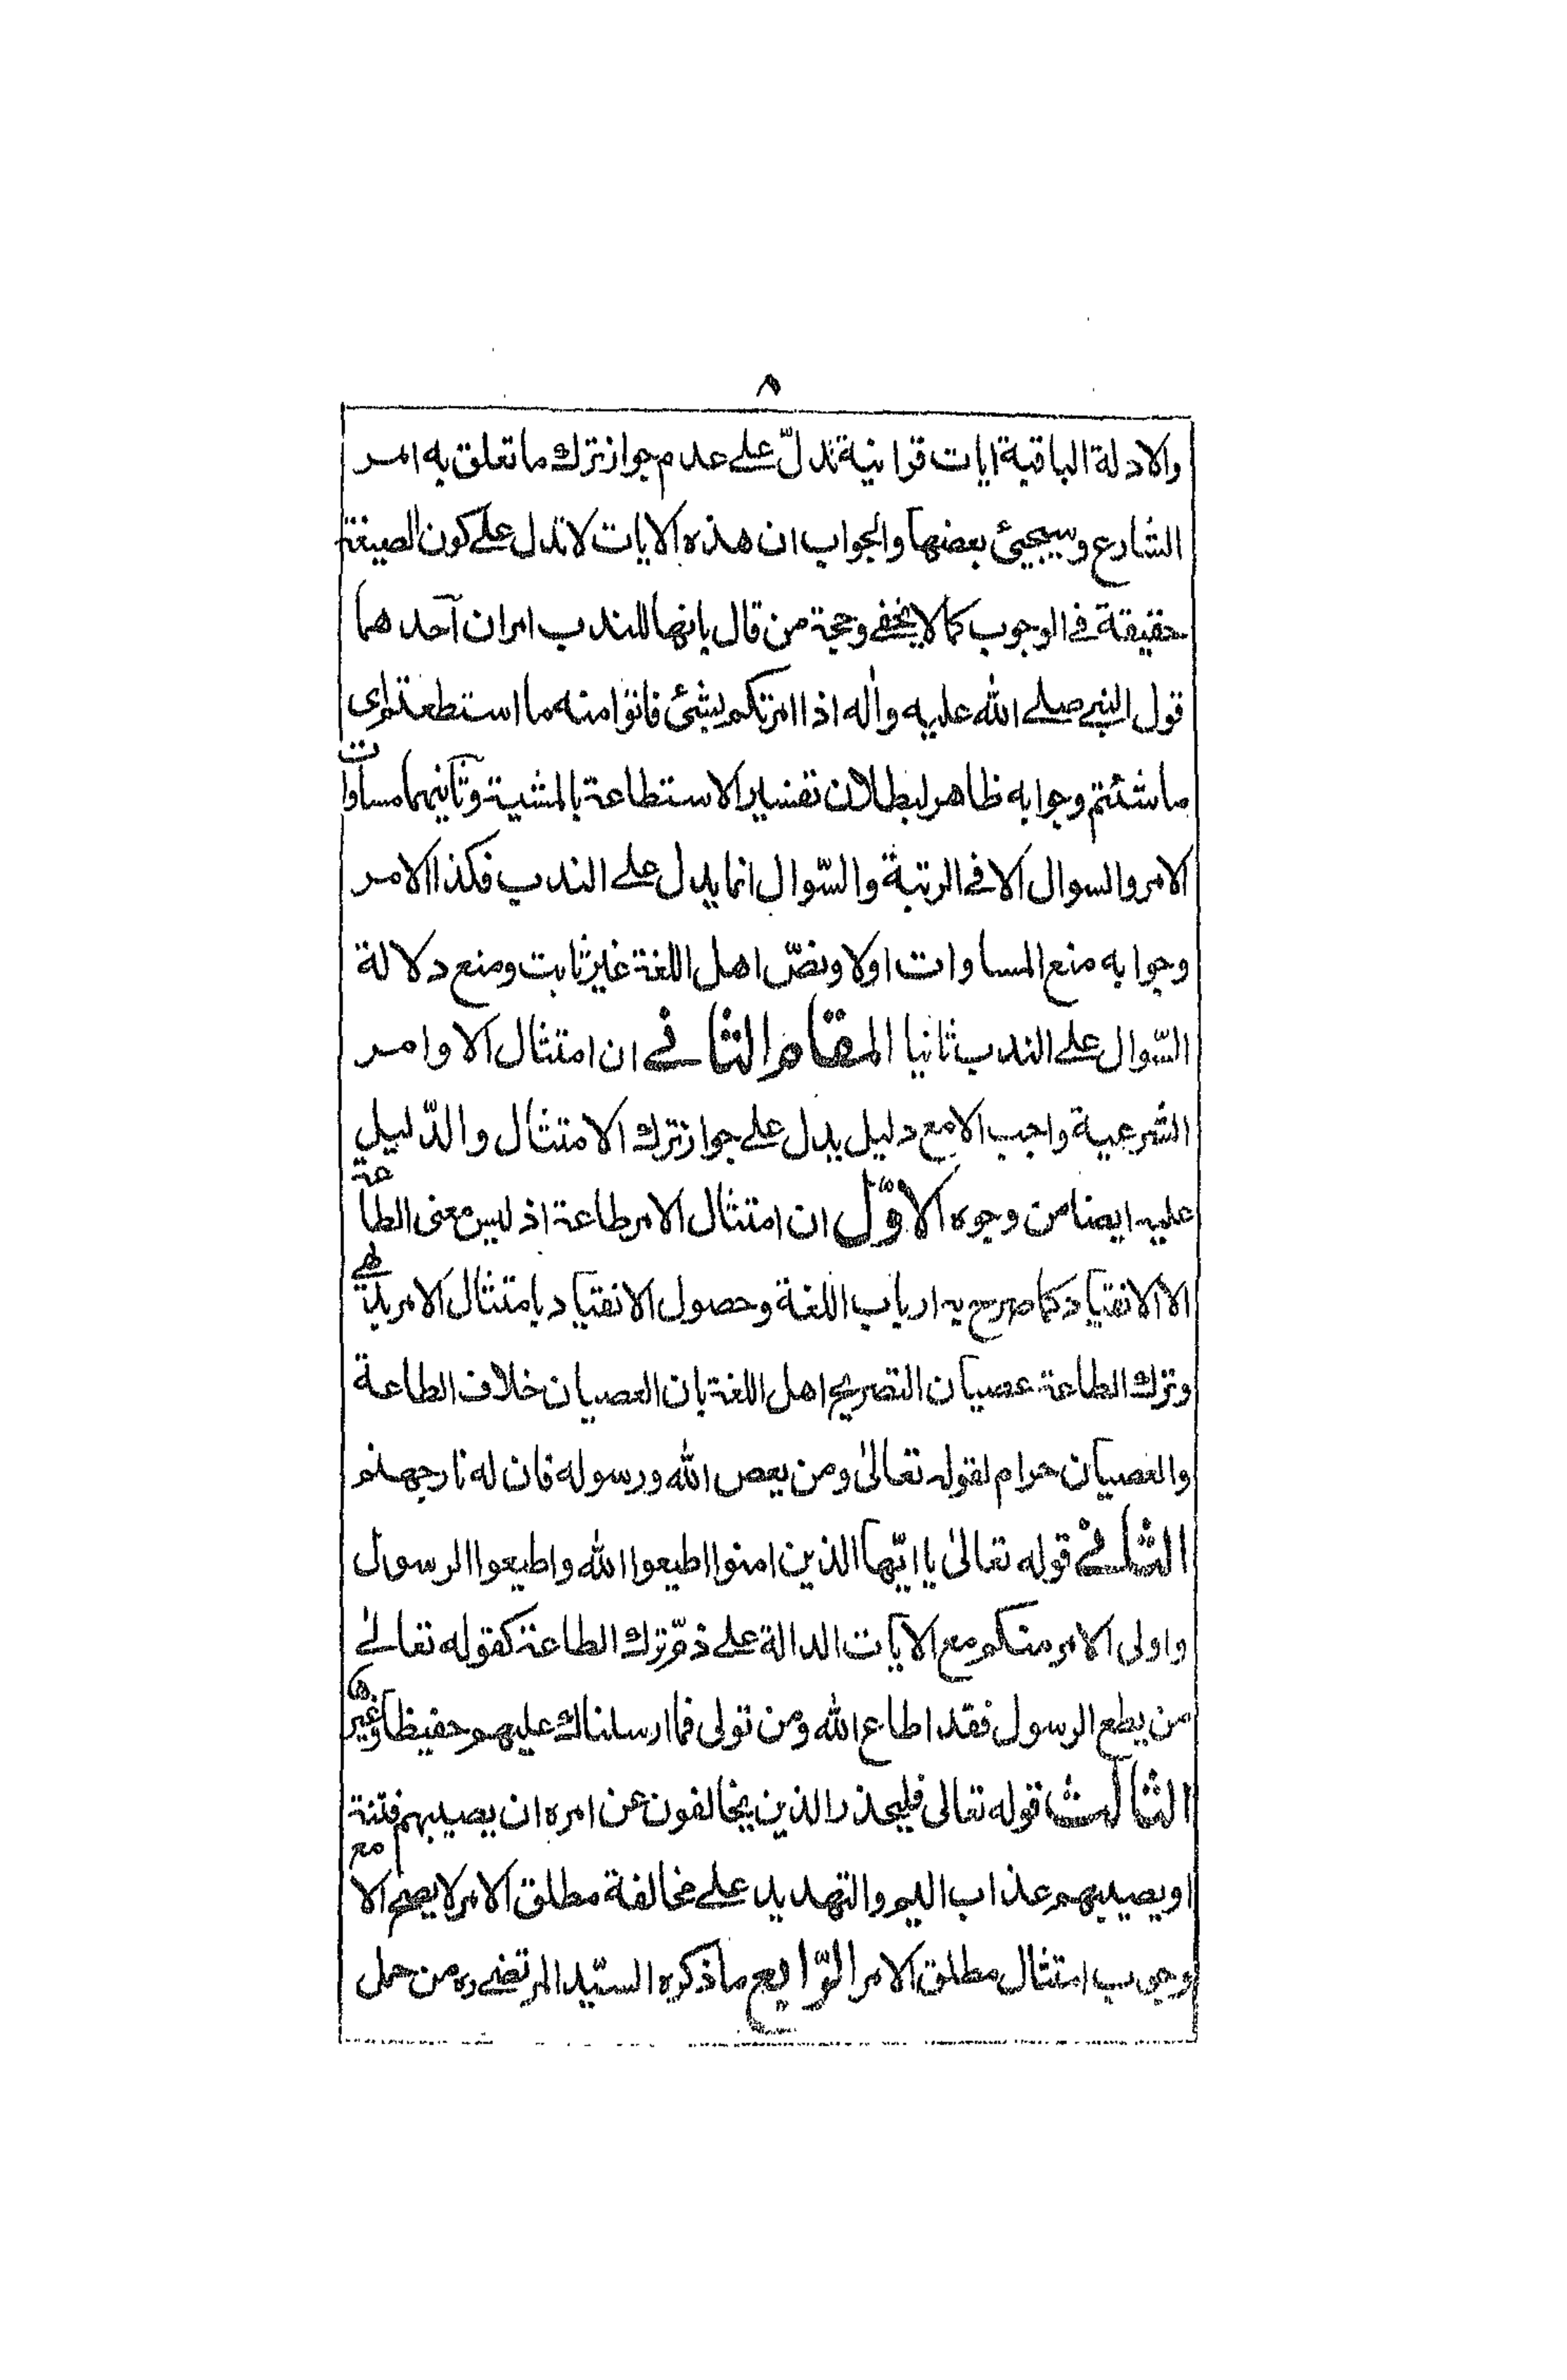 ٨
والادلة الباقية ايات قرانية تدلّ على عدم جواز ترك ما تعلق به امر
الشارع وسيجيئ بعضها والجواب ان هذه الايات لا تدل على كون الصيغة
حقيقة في الوجوب كما لا يخفى وحجة من قال بانها للندب امران آحدهما
قول النبي صلى الله عليه واله اذا امرتكم بشئ فاتوا منه ما استطعتم اى
ما شئتم وجوابه ظاهر لبطلان تفسير الاستطاعة بالمشية وثانيهما مساوات
الامر والسوال الا في الرتبة والسّوال انما يدل على الندب فكذا الامر
وجوابه منع المساوات اولا ونصّ اهل اللغة غير ثابت ومنع دلالة
السّوال على الندب ثانيا المقام الثاني في ان امتثال الاوامر
الشرعية واجب الا مع دليل يدل على جواز ترك الامتثال والدّليل
عليه ايضا من وجوه الاوّل ان امتثال الامر طاعة اذ ليس معنى الطاعة
الا الانقياد كما صرح به ارباب اللغة وحصول الانقياد بامتثال الامر بديهي
وترك الطاعة عصيان التصريح اهل اللغة بان العصيان خلاف الطاعة
والعصيان حرام لقوله تعالىٰ ومن يعص الله ورسوله فان له نار جهنم
الثاني قوله تعالىٰ يا ايّها الذين امنوا اطيعوا الله واطيعوا الرسول
واولى الامر منكم مع الآيات الدالة على ذمّ ترك الطاعة كقوله تعالىٰ
من يطع الرسول فقد اطاع الله ومن تولى فما ارسلناك عليهم حفيظا وغيرها
الثالث قوله تعالى فليحذر الذين يخالفون عن امره ان يصيبهم فتنة
او يصيبهم عذاب اليم والتهديد على مخالفة مطلق الامر لا يصح الا مع
وجوب امتثال مطلق الامر الرّابع ما ذكره السيّد المرتضى ره من حمل